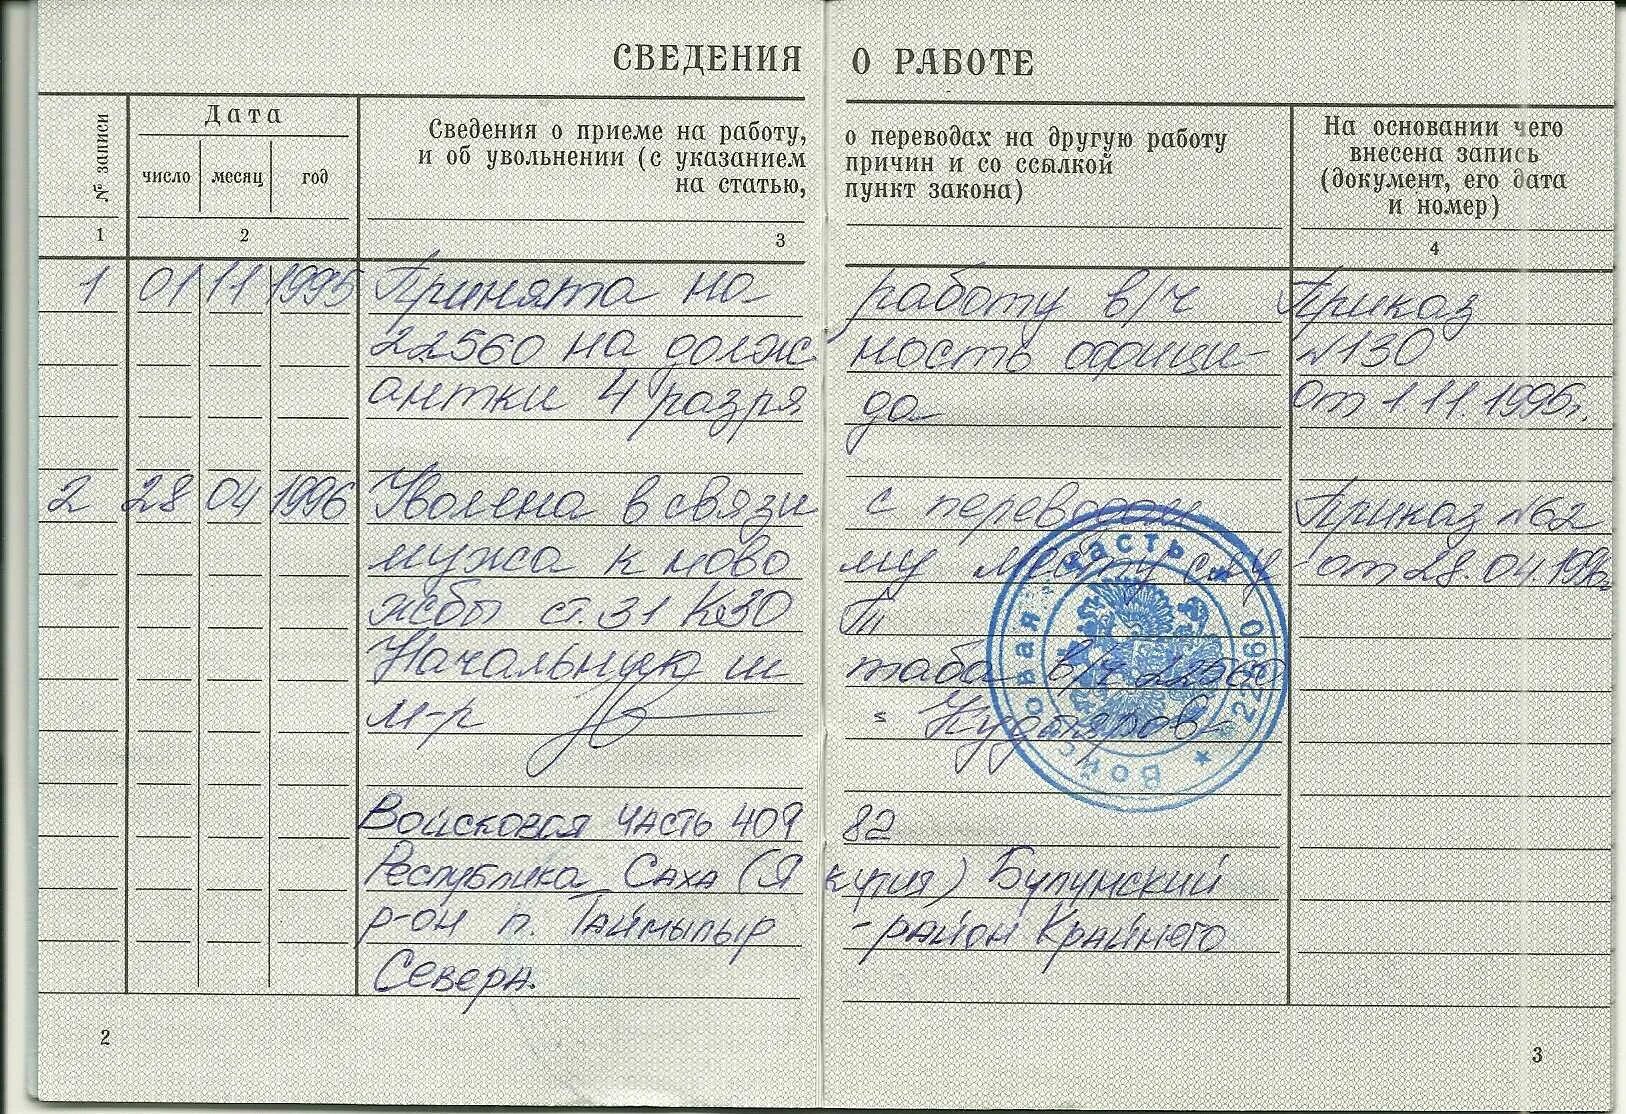 СВЕДЕНИЯ О РАБОТЕ
№ записи
Дата
число месяц год
Сведения о приеме на работу, о переводах на другую работу
и об увольнении (с указанием причин и со ссылкой
на статью, пункт закона)
На основании чего
внесена запись
(документ, его дата
и номер)
1 2 3 4
1 01 11 1995 Принята на работу в/ч Приказ
22560 на должность официантки 4 разряда №130
от 1.11.1995г.
2 28 04 1996 Уволена в связи с переводом Приказ №62
мужа к новому месту слу от 28.04.1996г.
жбы ст. 31 КЗО Т
Начальник штаба в/ч 22560
м-р Кудаяров
Войсковая часть 22560
Войсковая часть 40982
Республика Саха (Якутия) Булунский
р-он п. Таймылыр -район Крайнего
Севера.
2
3